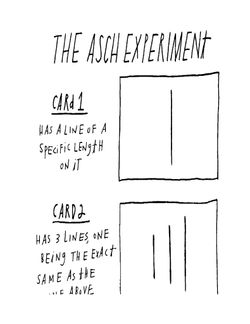 THE ASCH EXPERIMENt
CARd 1
HAS A LINE OF A
SPECIFIC LENGtH
ON IT
CARD 2
HAS 3 LINES, ONE
BEING THE EXACt
SAME AS tHE
ONE ABOVE